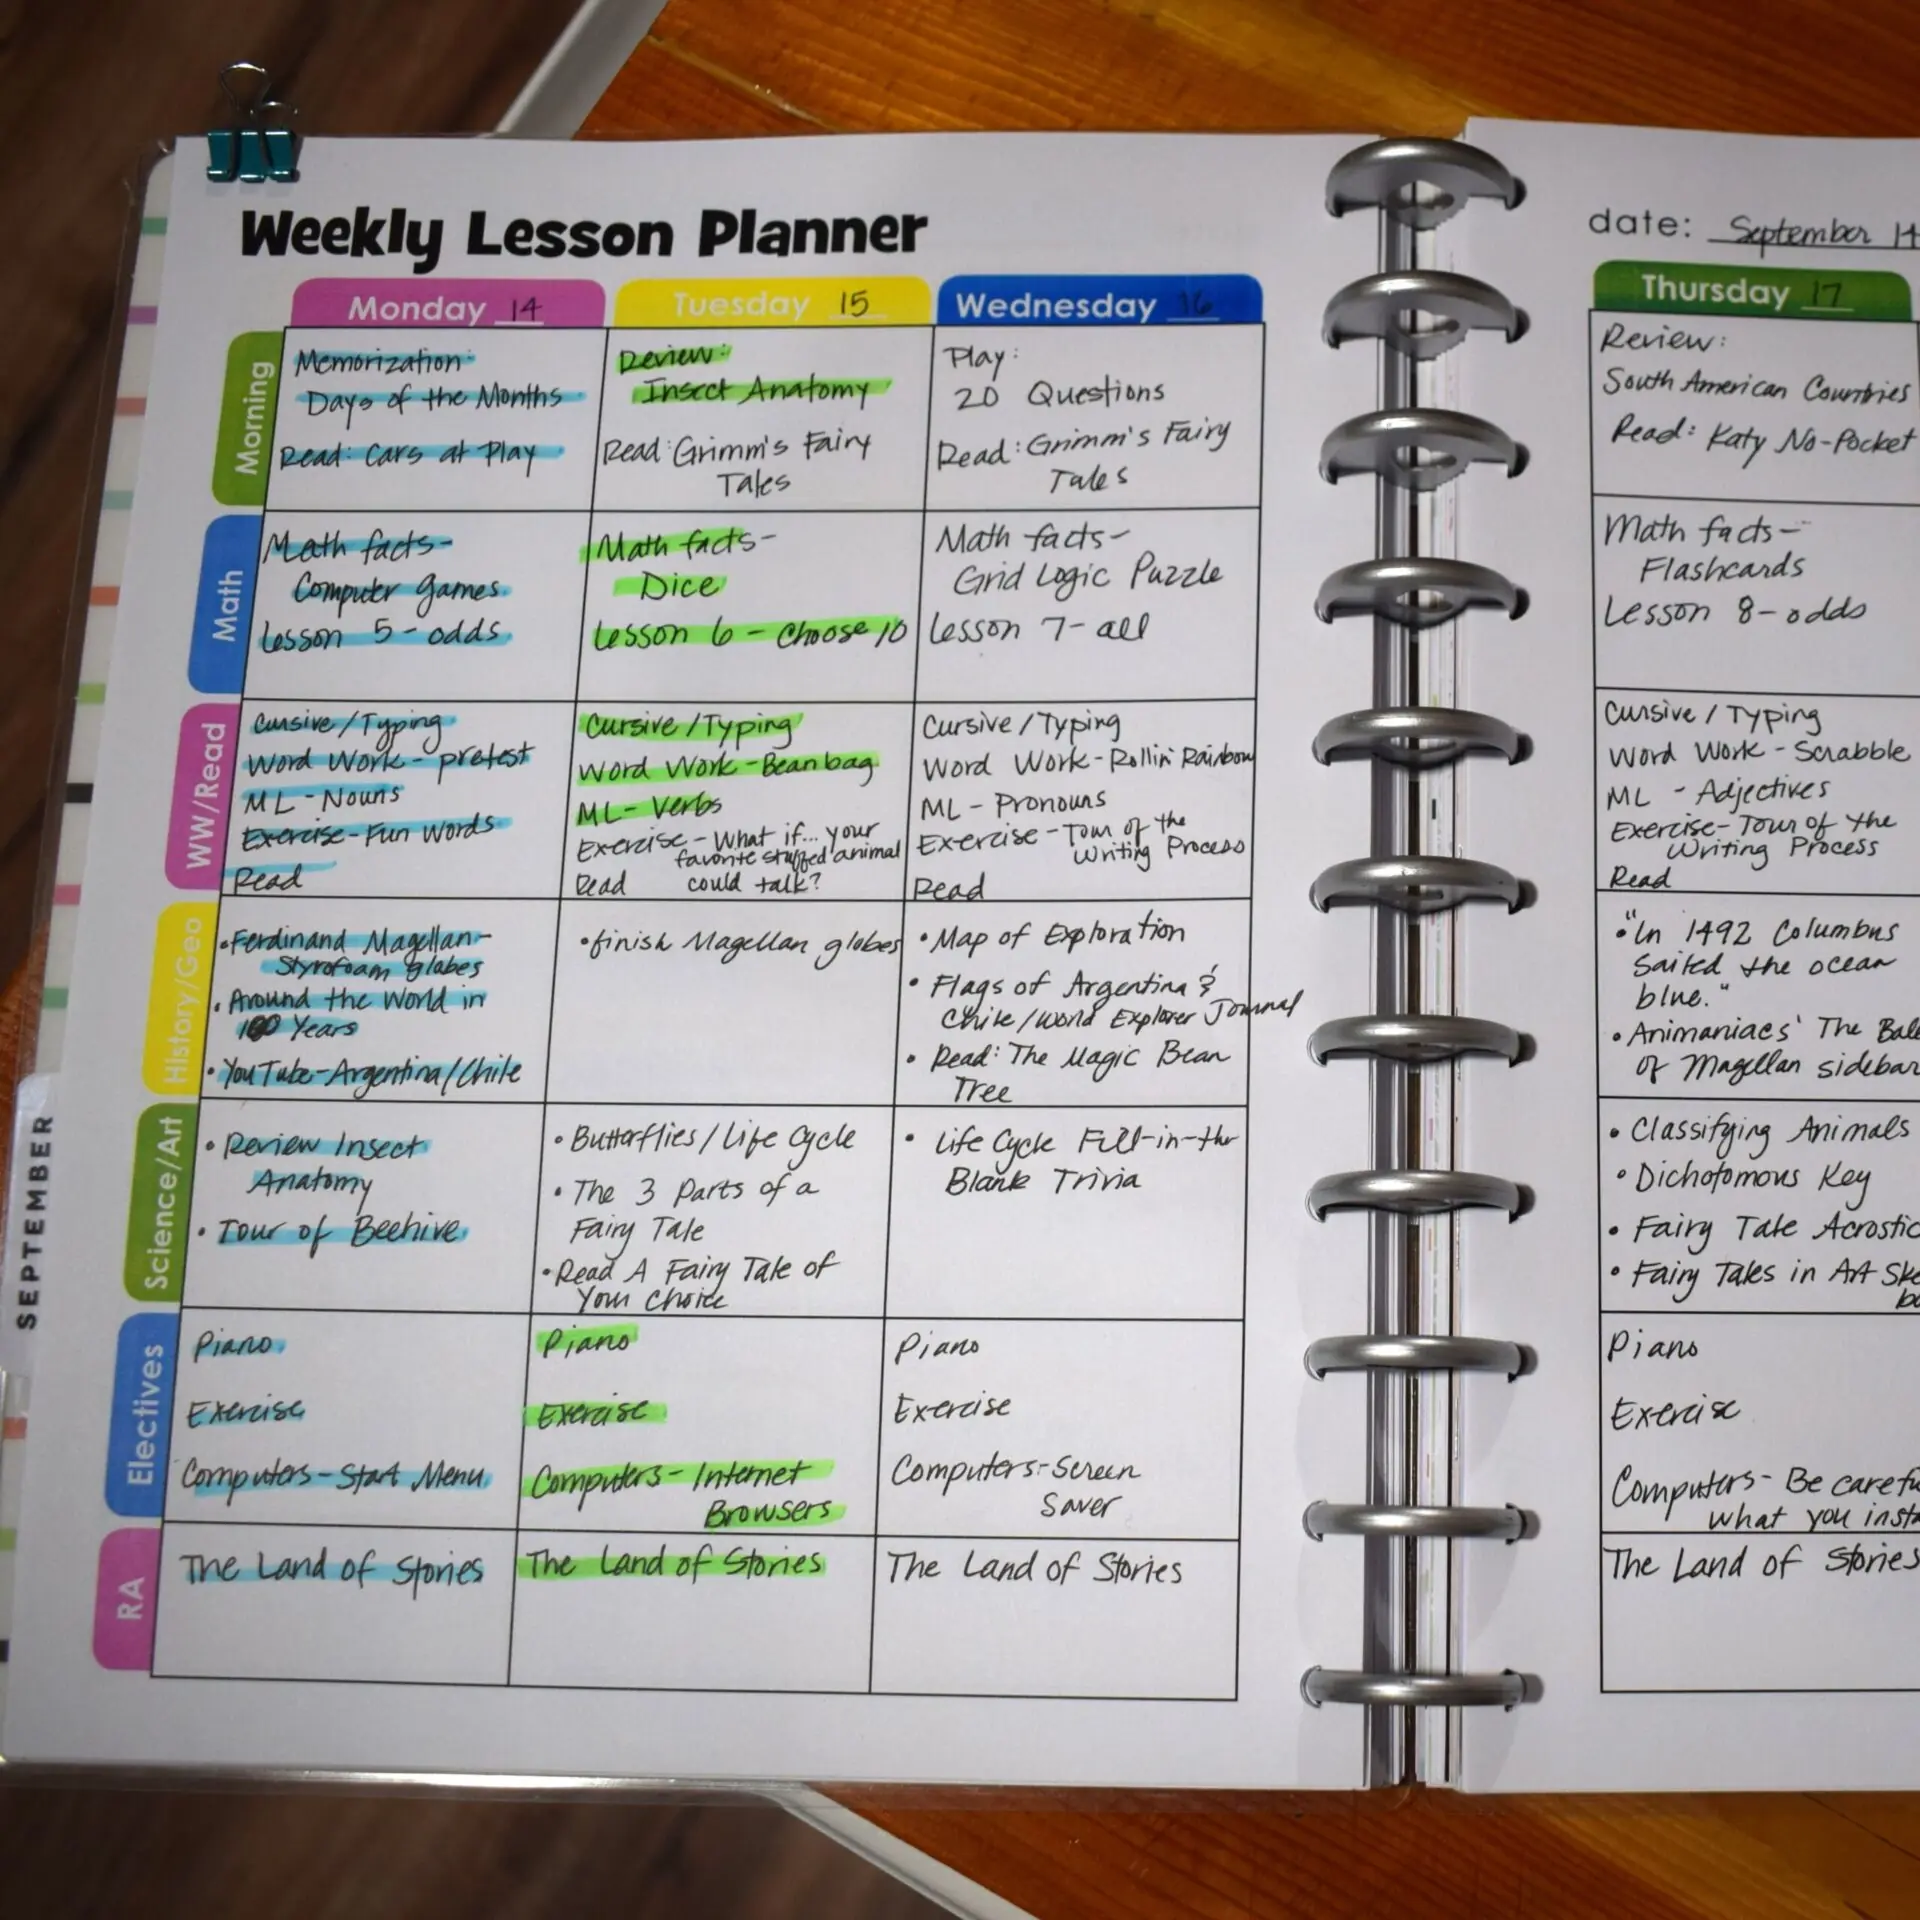 Weekly Lesson Planner
date: September 14
Monday 14
Tuesday 15
Wednesday 16
Thursday 17
Morning
Memorization:
Days of the Months
Read: Cars at Play
Review:
Insect Anatomy
Read: Grimm's Fairy
Tales
Play:
20 Questions
Read: Grimm's Fairy
Tales
Review:
South American Countries
Read: Katy No-Pocket
Math
Math facts-
Computer games
Lesson 5 - odds
Math facts-
Dice
Lesson 6 - choose 10
Math facts-
Grid Logic Puzzle
Lesson 7 - all
Math facts-
Flashcards
Lesson 8 - odds
WW/Read
Cursive/Typing
Word Work - pretest
ML - Nouns
Exercise - Fun Words
Read
Cursive/Typing
Word Work - Beanbag
ML - Verbs
Exercise - What if... your
favorite stuffed animal
Read could talk?
Cursive/Typing
Word Work - Rollin' Rainbow
ML - Pronouns
Exercise - Tour of the
Writing Process
Read
Cursive / Typing
Word Work - Scrabble
ML - Adjectives
Exercise - Tour of the
Writing Process
Read
History/Geo
• Ferdinand Magellan-
Styrofoam globes
• Around the World in
100 Years
• YouTube - Argentina/Chile
• finish Magellan globes
• Map of Exploration
• Flags of Argentina &
Chile/World Explorer Journal
• Read: The Magic Bean
Tree
• "In 1492 Columbus
sailed the ocean
blue."
• Animaniacs' The
of Magellan sidebar
Science/Art
• Review Insect
Anatomy
• Tour of Beehive
• Butterflies/Life Cycle
• The 3 Parts of a
Fairy Tale
• Read A Fairy Tale of
Your Choice
• Life Cycle Fill-in-the
Blank Trivia
• Classifying Animals
• Dichotomous Key
• Fairy Tale Acrostic
• Fairy Tales in Art
Electives
Piano
Exercise
Computers - Start Menu
Piano
Exercise
Computers - Internet
Browsers
Piano
Exercise
Computers - Screen
Saver
Piano
Exercise
Computers - Be
what you
RA
The Land of Stories
The Land of Stories
The Land of Stories
The Land of Stories
SEPTEMBER